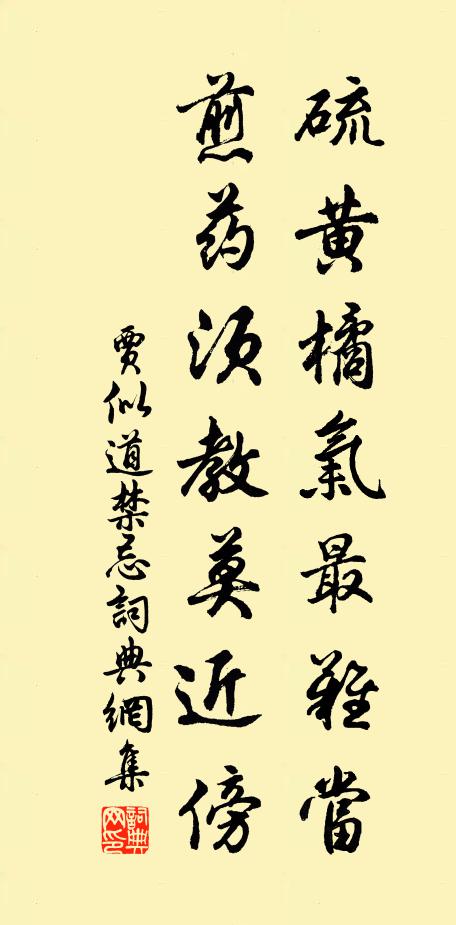 硫黄橘氣最難當
煎药須教莫近傍
賈似道禁忌詞典網集
詞典网印